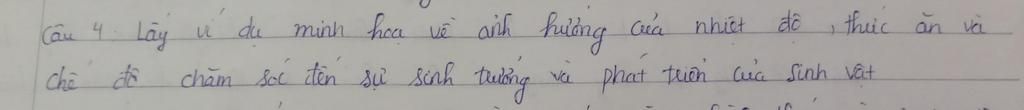 Câu 4: Lấy ví dụ minh họa về ảnh hưởng của nhiệt độ, thức ăn và
chế độ chăm sóc đến sự sinh trưởng và phát triển của sinh vật